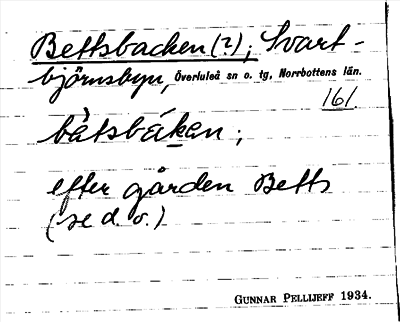 Bettsbacken (?); Svart-
björnsbyn, Överluleå sn o. tg, Norrbottens län.
161.
bètsbákan;
efter gården Betts
(se d. o.)
GUNNAR PELLIJEFF 1934.